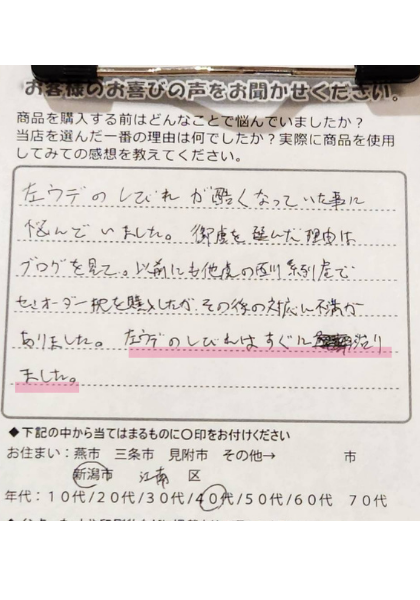 お客様のお喜びの声をお聞かせください。
商品を購入する前はどんなことで悩んでいましたか？
当店を選んだ一番の理由は何でしたか？実際に商品を使用
してみての感想を教えてください。
左ウデのしびれが酷くなっていた事に
悩んでいました。御店を選んだ理由は
ブログを見て。以前にも他店の西川系列店で
セミオーダー枕を購入したが、その後の対応に不満が
ありました。左ウデのしびれはすぐに治り
ました。
◆下記の中から当てはまるものに〇印をお付けください
お住まい：燕市 三条市 見附市 その他→ 市
新潟市 江南 区
年代：10代/20代/30代/40代/50代/60代 70代